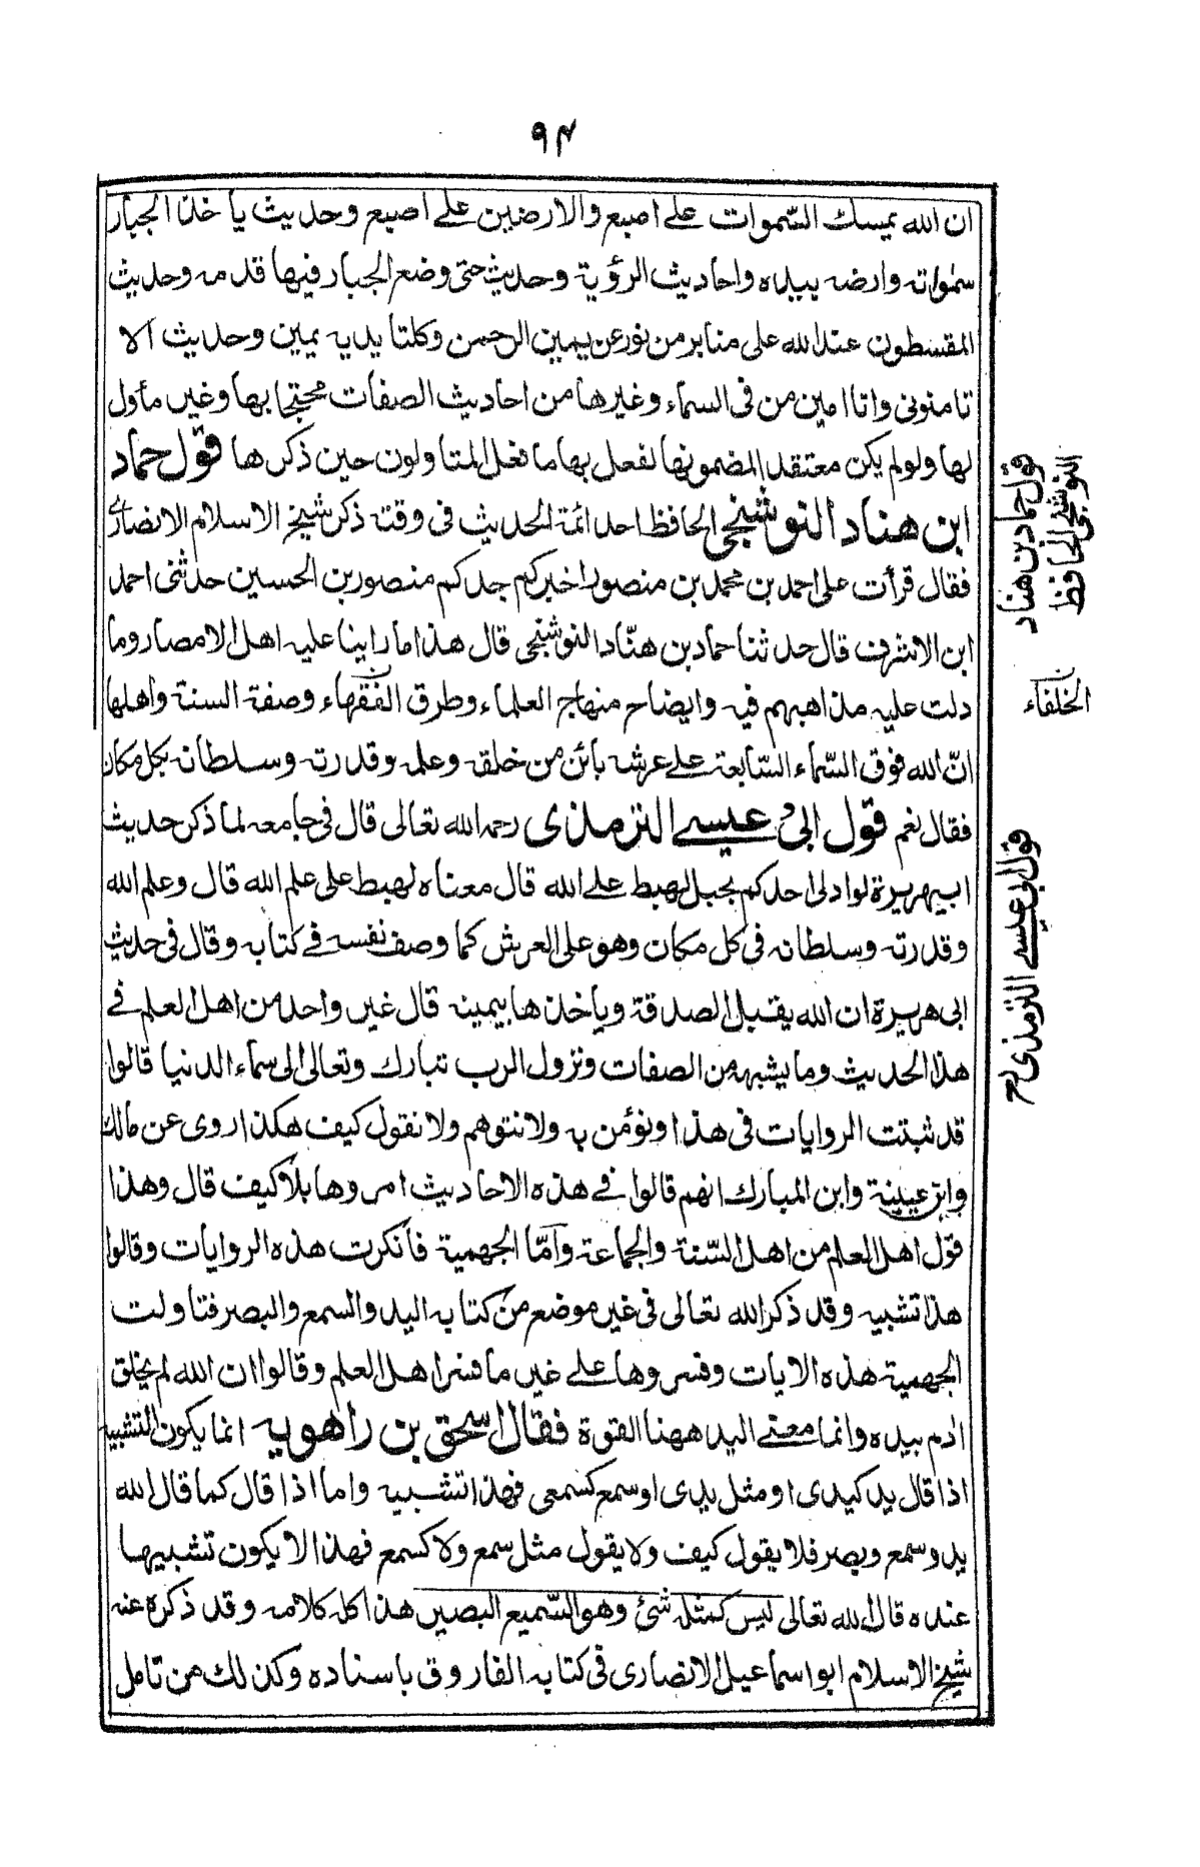 ٩٤
ان الله يمسك السّموات على اصبع والارضين على اصبع وحديث يأخذ الجبار
سمٰواته وارضه بيده واحاديث الرؤية وحديث حتى وضع الجبار فيها قدمه وحديث
المقسطون عند الله على منابر من نور عن يمين الرحمن وكلتا يديه يمين وحديث الا
تامنونى وانا امين من فى السماء وغيرها من احاديث الصفات محتجا بها وغير مأول
لها ولو لم يكن معتقد المضمونها لفعل بها ما فعل المتاولون حين ذكرها قول حماد
ابن هناد النوشنجى الحافظ احد ائمة الحديث فى وقته ذكر شيخ الاسلام الانصارى
فقال قرأت على احمد بن محمد بن منصور اخبركم جدكم منصور بن الحسين حدثنى احمد
ابن الاشرف قال حدثنا حماد بن هنّاد النوشنجى قال هذا ما راينا عليه اهل الامصار وما
دلت عليه مذاهبهم فيه وايضاح منهاج العلماء وطرق الفقهاء وصفة السنة واهلها
انّ الله فوق السّماء السّابعة على عرشه بائن من خلقه وعلمه وقدرته وسلطانه بكل مكان
فقال نعم قول ابى عيسى الترمذى رحمه الله تعالى قال فى جامعه لما ذكر حديث
ابيهريرة لو ادلى احدكم بحبل لهبط على الله قال معناه لهبط على علم الله قال وعلم الله
وقدرته وسلطانه فى كل مكان وهو على العرش كما وصف نفسه فى كتابه وقال فى حديث
ابى هريرة ان الله يقبل الصدقة وياخذها بيمينه قال غير واحد من اهل العلم فى
هذا الحديث وما يشبهه من الصفات ونزول الرب تبارك وتعالى الى سماء الدنيا قالوا
قد ثبتت الروايات فى هذا ونؤمن به ولا نتوهم ولا نقول كيف هكذا روى عن مالك
وابن عيينة وابن المبارك انهم قالوا فى هذه الاحاديث امروها بلا كيف قال وهذا
قول اهل العلم من اهل السّنة والجماعة وامّا الجهمية فأنكرت هذه الروايات وقالوا
هذا تشبيه وقد ذكر الله تعالى فى غير موضع من كتابه اليد والسمع والبصر فتاولت
الجهمية هذه الايات وفسروها على غير ما فسر اهل العلم وقالوا ان الله لم يخلق
ادم بيده وانما معنى اليد ههنا القوة فقال اسحق بن راهويه انما يكون التشبيه
اذا قال يد كيدى او مثل يدى او سمع كسمعى فهذا تشبيه واما اذا قال كما قال الله
يد وسمع وبصر فلا يقول كيف ولا يقول مثل سمع ولا كسمع فهذا لا يكون تشبيها
عنده قال الله تعالى ليس كمثله شئ وهو السّميع البصير هذا كله كلامه وقد ذكره عنه
شيخ الاسلام ابو اسماعيل الانصارى فى كتابه الفاروق باسناده وكذلك من تامل
قول حماد بن هناد
النوشنجى الحافظ
الخلفاء
قول ابى عيسى الترمذى رح